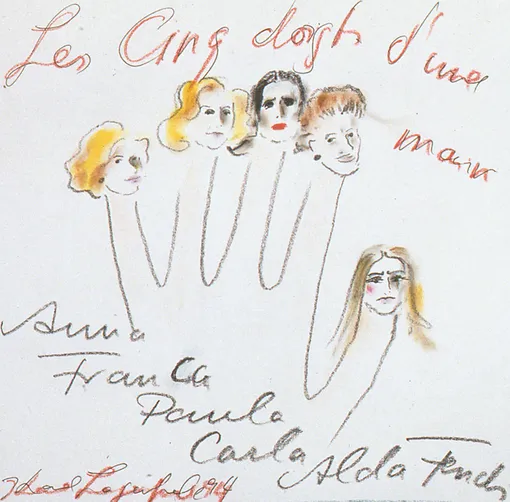 Les Cinq doigts d'une
main
Anna
Franca
Paula
Carla Alda Fendi
Karl Lagerfeld